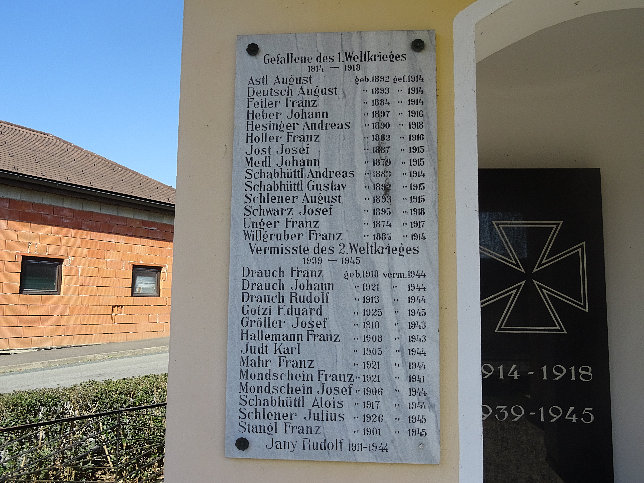 Gefallene des 1.Weltkrieges
1914 — 1918
Astl August geb.1892 gef.1914
Deutsch August " 1893 " 1914
Feiler Franz " 1884 " 1914
Heber Johann " 1897 " 1916
Hesinger Andreas " 1890 " 1918
Holler Franz " 1882 " 1916
Jost Josef " 1887 " 1915
Medl Johann " 1879 " 1915
Schabhüttl Andreas " 1883 " 1914
Schabhüttl Gustav " 1892 " 1915
Schlener August " 1893 " 1915
Schwarz Josef " 1895 " 1918
Unger Franz " 1874 " 1917
Willgruber Franz " 1884 " 1914
Vermisste des 2.Weltkrieges
1939 — 1945
Drauch Franz geb.1918 verm.1944
Drauch Johann " 1921 " 1944
Drauch Rudolf " 1913 " 1944
Gotzi Eduard " 1925 " 1945
Gröller Josef " 1910 " 1943
Hallemann Franz " 1908 " 1943
Judt Karl " 1905 " 1944
Mahr Franz " 1921 " 1944
Mondschein Franz " 1921 " 1941
Mondschein Josef " 1906 " 1944
Schabhüttl Alois " 1917 " 1944
Schlener Julius " 1926 " 1945
Stangl Franz " 1901 " 1945
Jany Rudolf 1911-1944
1914-1918
1939-1945